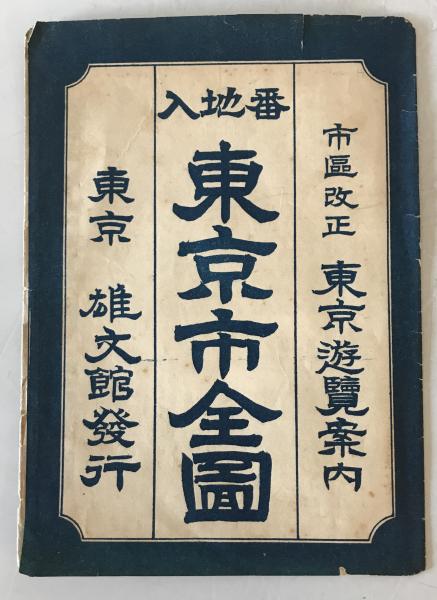 市區改正 東京遊覽案内
番地入
東京市全圖
東京 雄文館發行